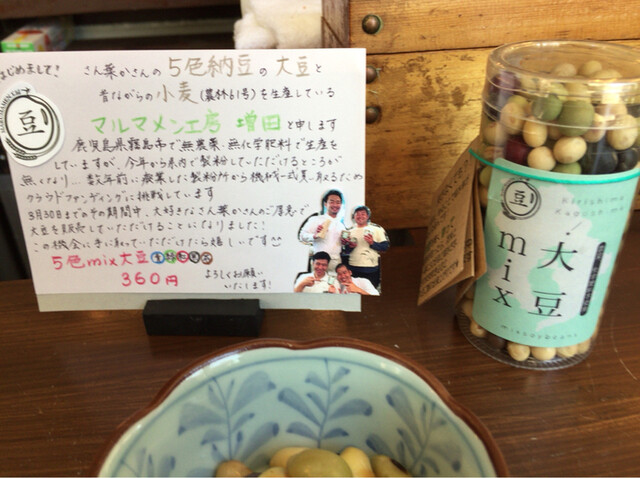 はじめまして!
さん葉かさんの5色納豆の大豆と
昔ながらの小麦(農林61号)を生産している
マルマメン工房 増田と申します
鹿児島県霧島市で無農薬、無化学肥料で生産を
していますが、今年から県内で製粉していただけるところが
無くなり...数年前に廃業した製粉所から機械一式買取るため
クラウドファンディングに挑戦しています
3月30日までのその期間中、大好きなさん葉かさんのご厚意で
大豆を販売していただけることになりました!
この機会に手に取っていただけたら嬉しいです
5色mix大豆
360円
よろしくお願い
いたします!
豆
豆
Kirishima
Kagoshima
大豆
mix